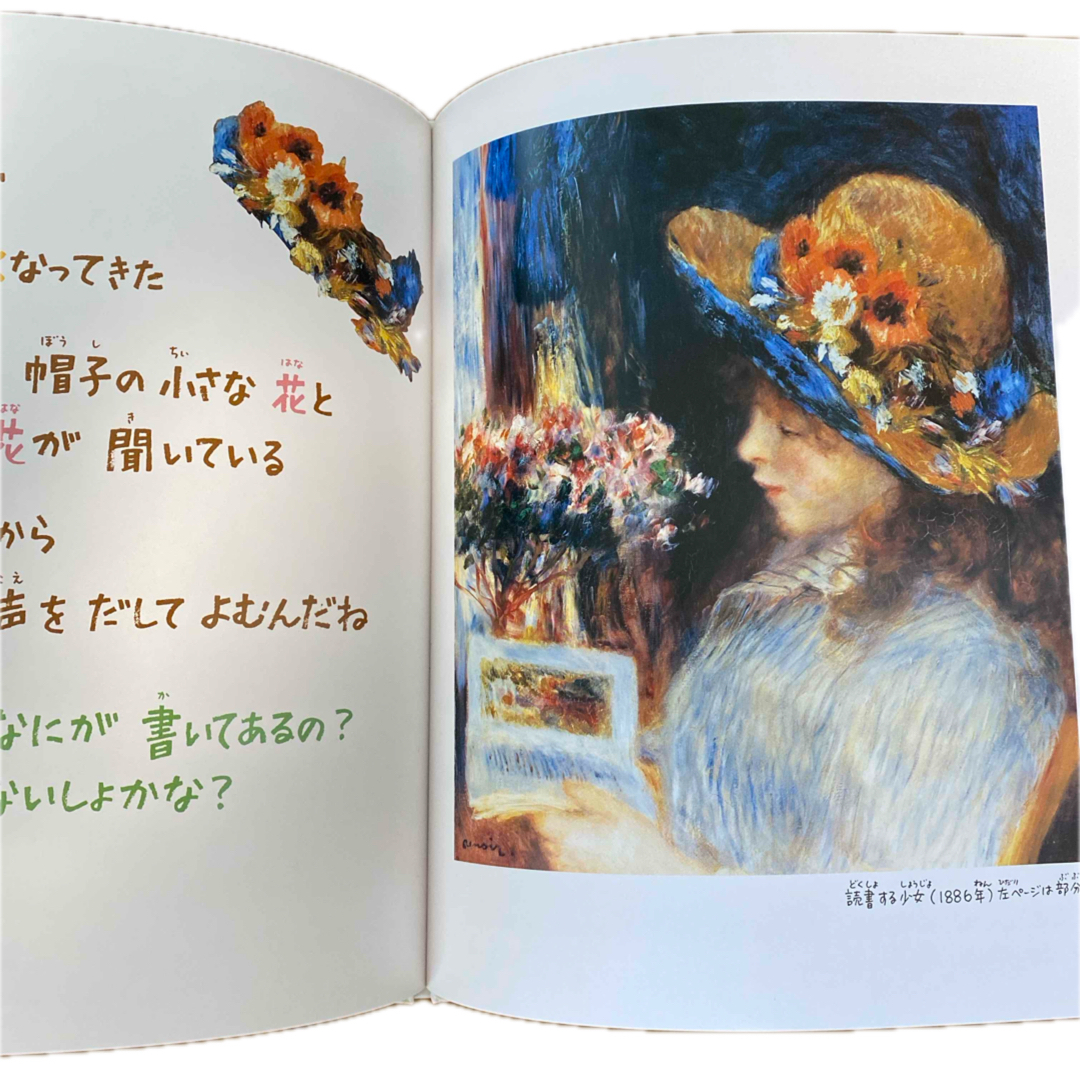 なってきた
帽子の小さな花と
花が聞いている
から
声をだしてよむんだね
なにが書いてあるの?
ないしょかな?
読書する少女(1886年)左ページは部分